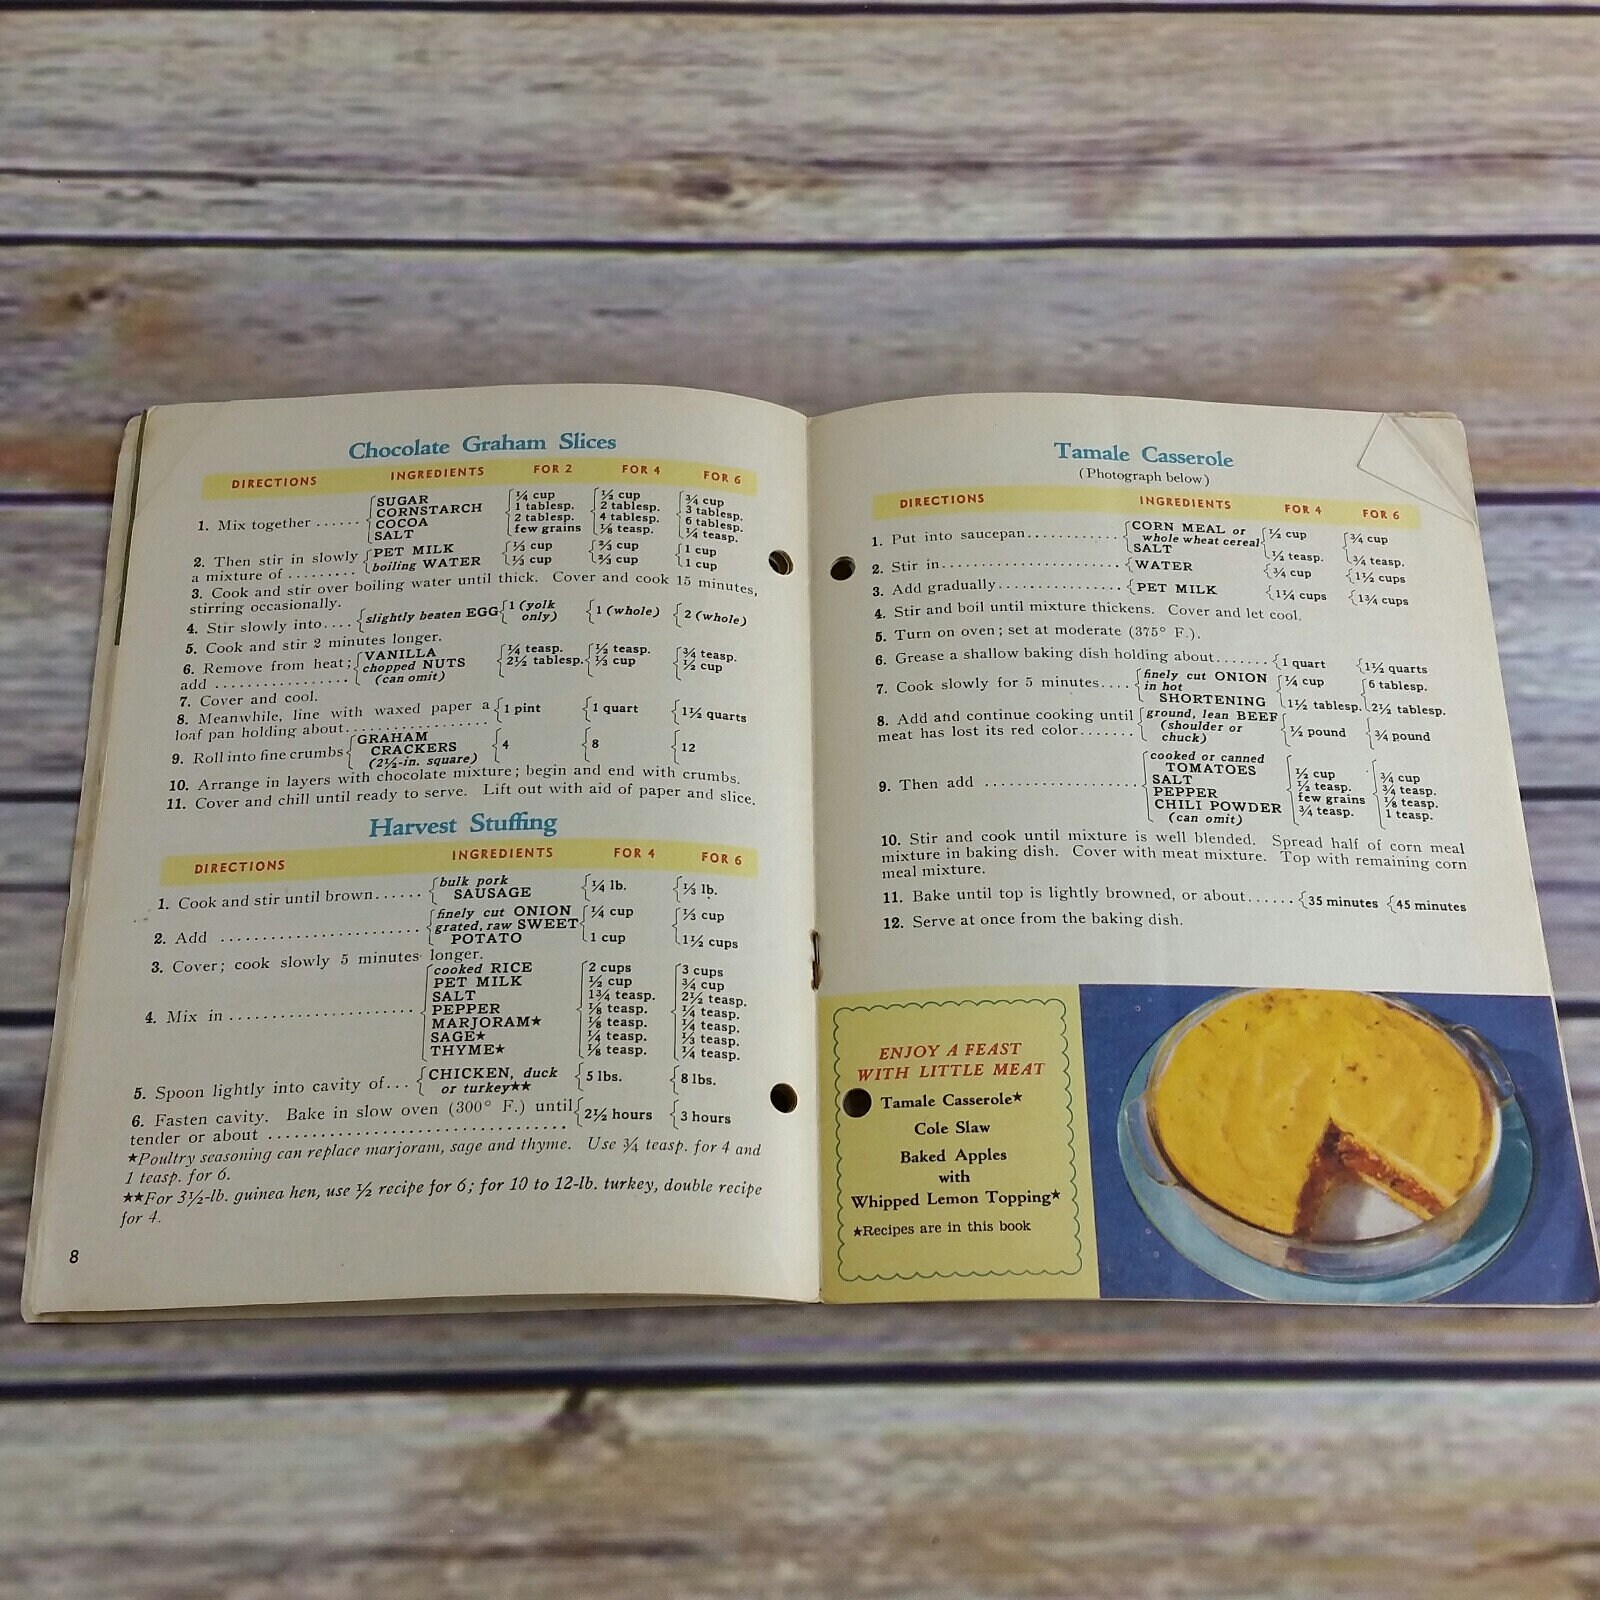 Chocolate Graham Slices
DIRECTIONS INGREDIENTS FOR 2 FOR 4 FOR 6
1. Mix together ...... { SUGAR { ¼ cup { ½ cup { ¾ cup
CORNSTARCH 1 tablesp. 2 tablesp. 3 tablesp.
COCOA 2 tablesp. 4 tablesp. 6 tablesp.
SALT few grains ⅛ teasp. ¼ teasp.
2. Then stir in slowly { PET MILK { ⅓ cup { ⅔ cup { 1 cup
a mixture of ......... boiling WATER ⅓ cup ⅔ cup 1 cup
3. Cook and stir over boiling water until thick. Cover and cook 15 minutes,
stirring occasionally.
4. Stir slowly into.... { slightly beaten EGG { 1 (yolk only) { 1 (whole) { 2 (whole)
5. Cook and stir 2 minutes longer.
6. Remove from heat; { VANILLA { ¼ teasp. { ½ teasp. { ¾ teasp.
add ................. chopped NUTS 2½ tablesp. ⅓ cup ½ cup
(can omit)
7. Cover and cool.
8. Meanwhile, line with waxed paper a { 1 pint { 1 quart { 1½ quarts
loaf pan holding about..................
9. Roll into fine crumbs { GRAHAM CRACKERS { 4 { 8 { 12
(2½-in. square)
10. Arrange in layers with chocolate mixture; begin and end with crumbs.
11. Cover and chill until ready to serve. Lift out with aid of paper and slice.
Harvest Stuffing
DIRECTIONS INGREDIENTS FOR 4 FOR 6
1. Cook and stir until brown...... { bulk pork SAUSAGE { ¼ lb. { ⅓ lb.
2. Add ........................ { finely cut ONION { ¼ cup { ⅓ cup
grated, raw SWEET
POTATO 1 cup 1½ cups
3. Cover; cook slowly 5 minutes longer.
4. Mix in ...................... { cooked RICE { 2 cups { 3 cups
PET MILK ½ cup ¾ cup
SALT 1¾ teasp. 2½ teasp.
PEPPER ⅛ teasp. ¼ teasp.
MARJORAM★ ⅛ teasp. ¼ teasp.
SAGE★ ¼ teasp. ⅓ teasp.
THYME★ ⅛ teasp. ¼ teasp.
5. Spoon lightly into cavity of... { CHICKEN, duck { 5 lbs. { 8 lbs.
or turkey★★
6. Fasten cavity. Bake in slow oven (300° F.) until { 2½ hours { 3 hours
tender or about ..................................
★Poultry seasoning can replace marjoram, sage and thyme. Use ¾ teasp. for 4 and
1 teasp. for 6.
★★For 3½-lb. guinea hen, use ½ recipe for 6; for 10 to 12-lb. turkey, double recipe
for 4.
8
Tamale Casserole
(Photograph below)
DIRECTIONS INGREDIENTS FOR 4 FOR 6
1. Put into saucepan............ { CORN MEAL or { ½ cup { ¾ cup
whole wheat cereal
SALT ½ teasp. ¾ teasp.
2. Stir in........................ { WATER { ¾ cup { 1½ cups
3. Add gradually................ { PET MILK { 1¼ cups { 1¾ cups
4. Stir and boil until mixture thickens. Cover and let cool.
5. Turn on oven; set at moderate (375° F.).
6. Grease a shallow baking dish holding about....... { 1 quart { 1½ quarts
7. Cook slowly for 5 minutes.... { finely cut ONION { ¼ cup { 6 tablesp.
in hot
SHORTENING 1½ tablesp. 2½ tablesp.
8. Add and continue cooking until { ground, lean BEEF { ½ pound { ¾ pound
meat has lost its red color....... (shoulder or
chuck)
9. Then add ................... { cooked or canned
TOMATOES ½ cup ¾ cup
SALT ½ teasp. ¾ teasp.
PEPPER few grains ⅛ teasp.
CHILI POWDER ¾ teasp. 1 teasp.
(can omit)
10. Stir and cook until mixture is well blended. Spread half of corn meal
mixture in baking dish. Cover with meat mixture. Top with remaining corn
meal mixture.
11. Bake until top is lightly browned, or about...... { 35 minutes { 45 minutes
12. Serve at once from the baking dish.
ENJOY A FEAST
WITH LITTLE MEAT
Tamale Casserole★
Cole Slaw
Baked Apples
with
Whipped Lemon Topping★
★Recipes are in this book